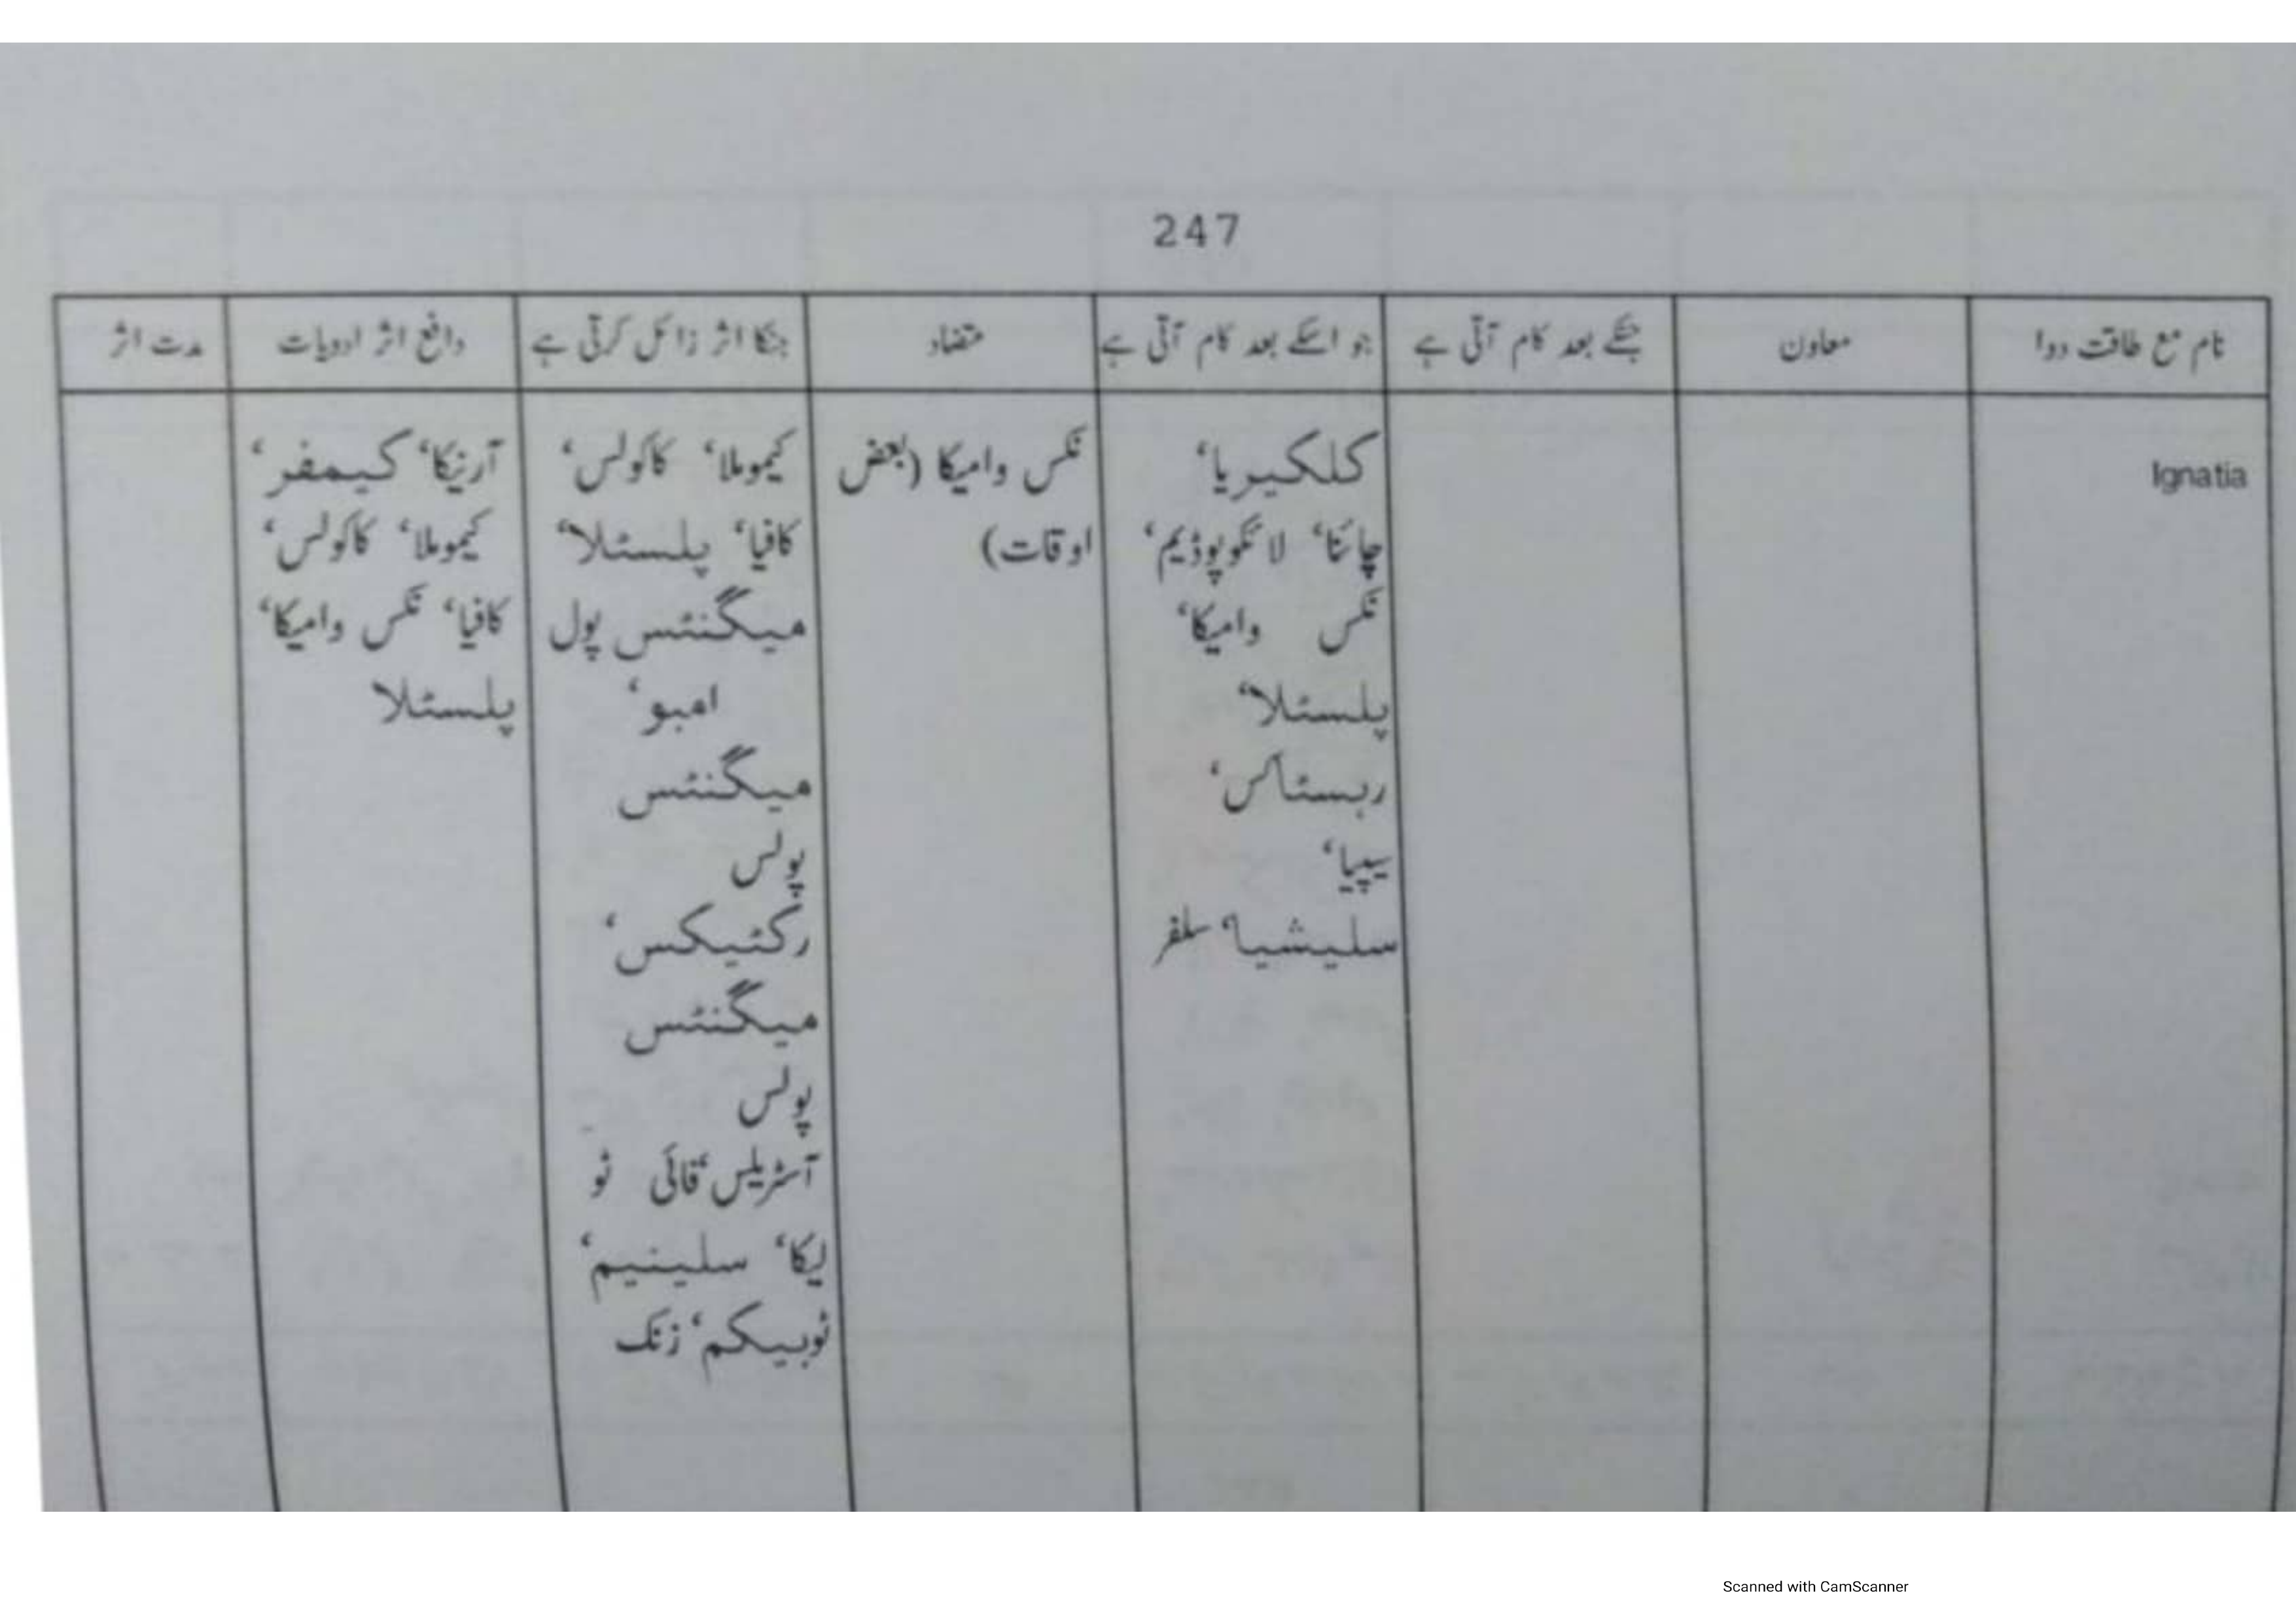 247
نام مع طاقت دوا
معاون
جسکے بعد کام آتی ہے
جو اسکے بعد کام آتی ہے
متضاد
جنکا اثر زائل کرتی ہے
دافع اثر ادویات
مدت اثر
Ignatia
کلکیریا‘
چائنا‘ لائکوپوڈیم‘
نکس وامیکا‘
پلسٹلا‘
رہسٹاکس‘
سیپیا‘
سلیشیا‘ سلفر
نکس وامیکا (بعض
اوقات)
کیموملا‘ کاکولس‘
کافیا‘ پلسٹلا‘
میگنٹس پول
امبو‘
میگنٹس
پولس
رکٹیکس‘
میگنٹس
پولس
آسٹریلس‘ فائی ٹو
لیکا‘ سلینیم‘
ٹوبیکم‘ زنک
آرنیکا‘ کیمفر‘
کیموملا‘ کاکولس‘
کافیا‘ نکس وامیکا‘
پلسٹلا
Scanned with CamScanner